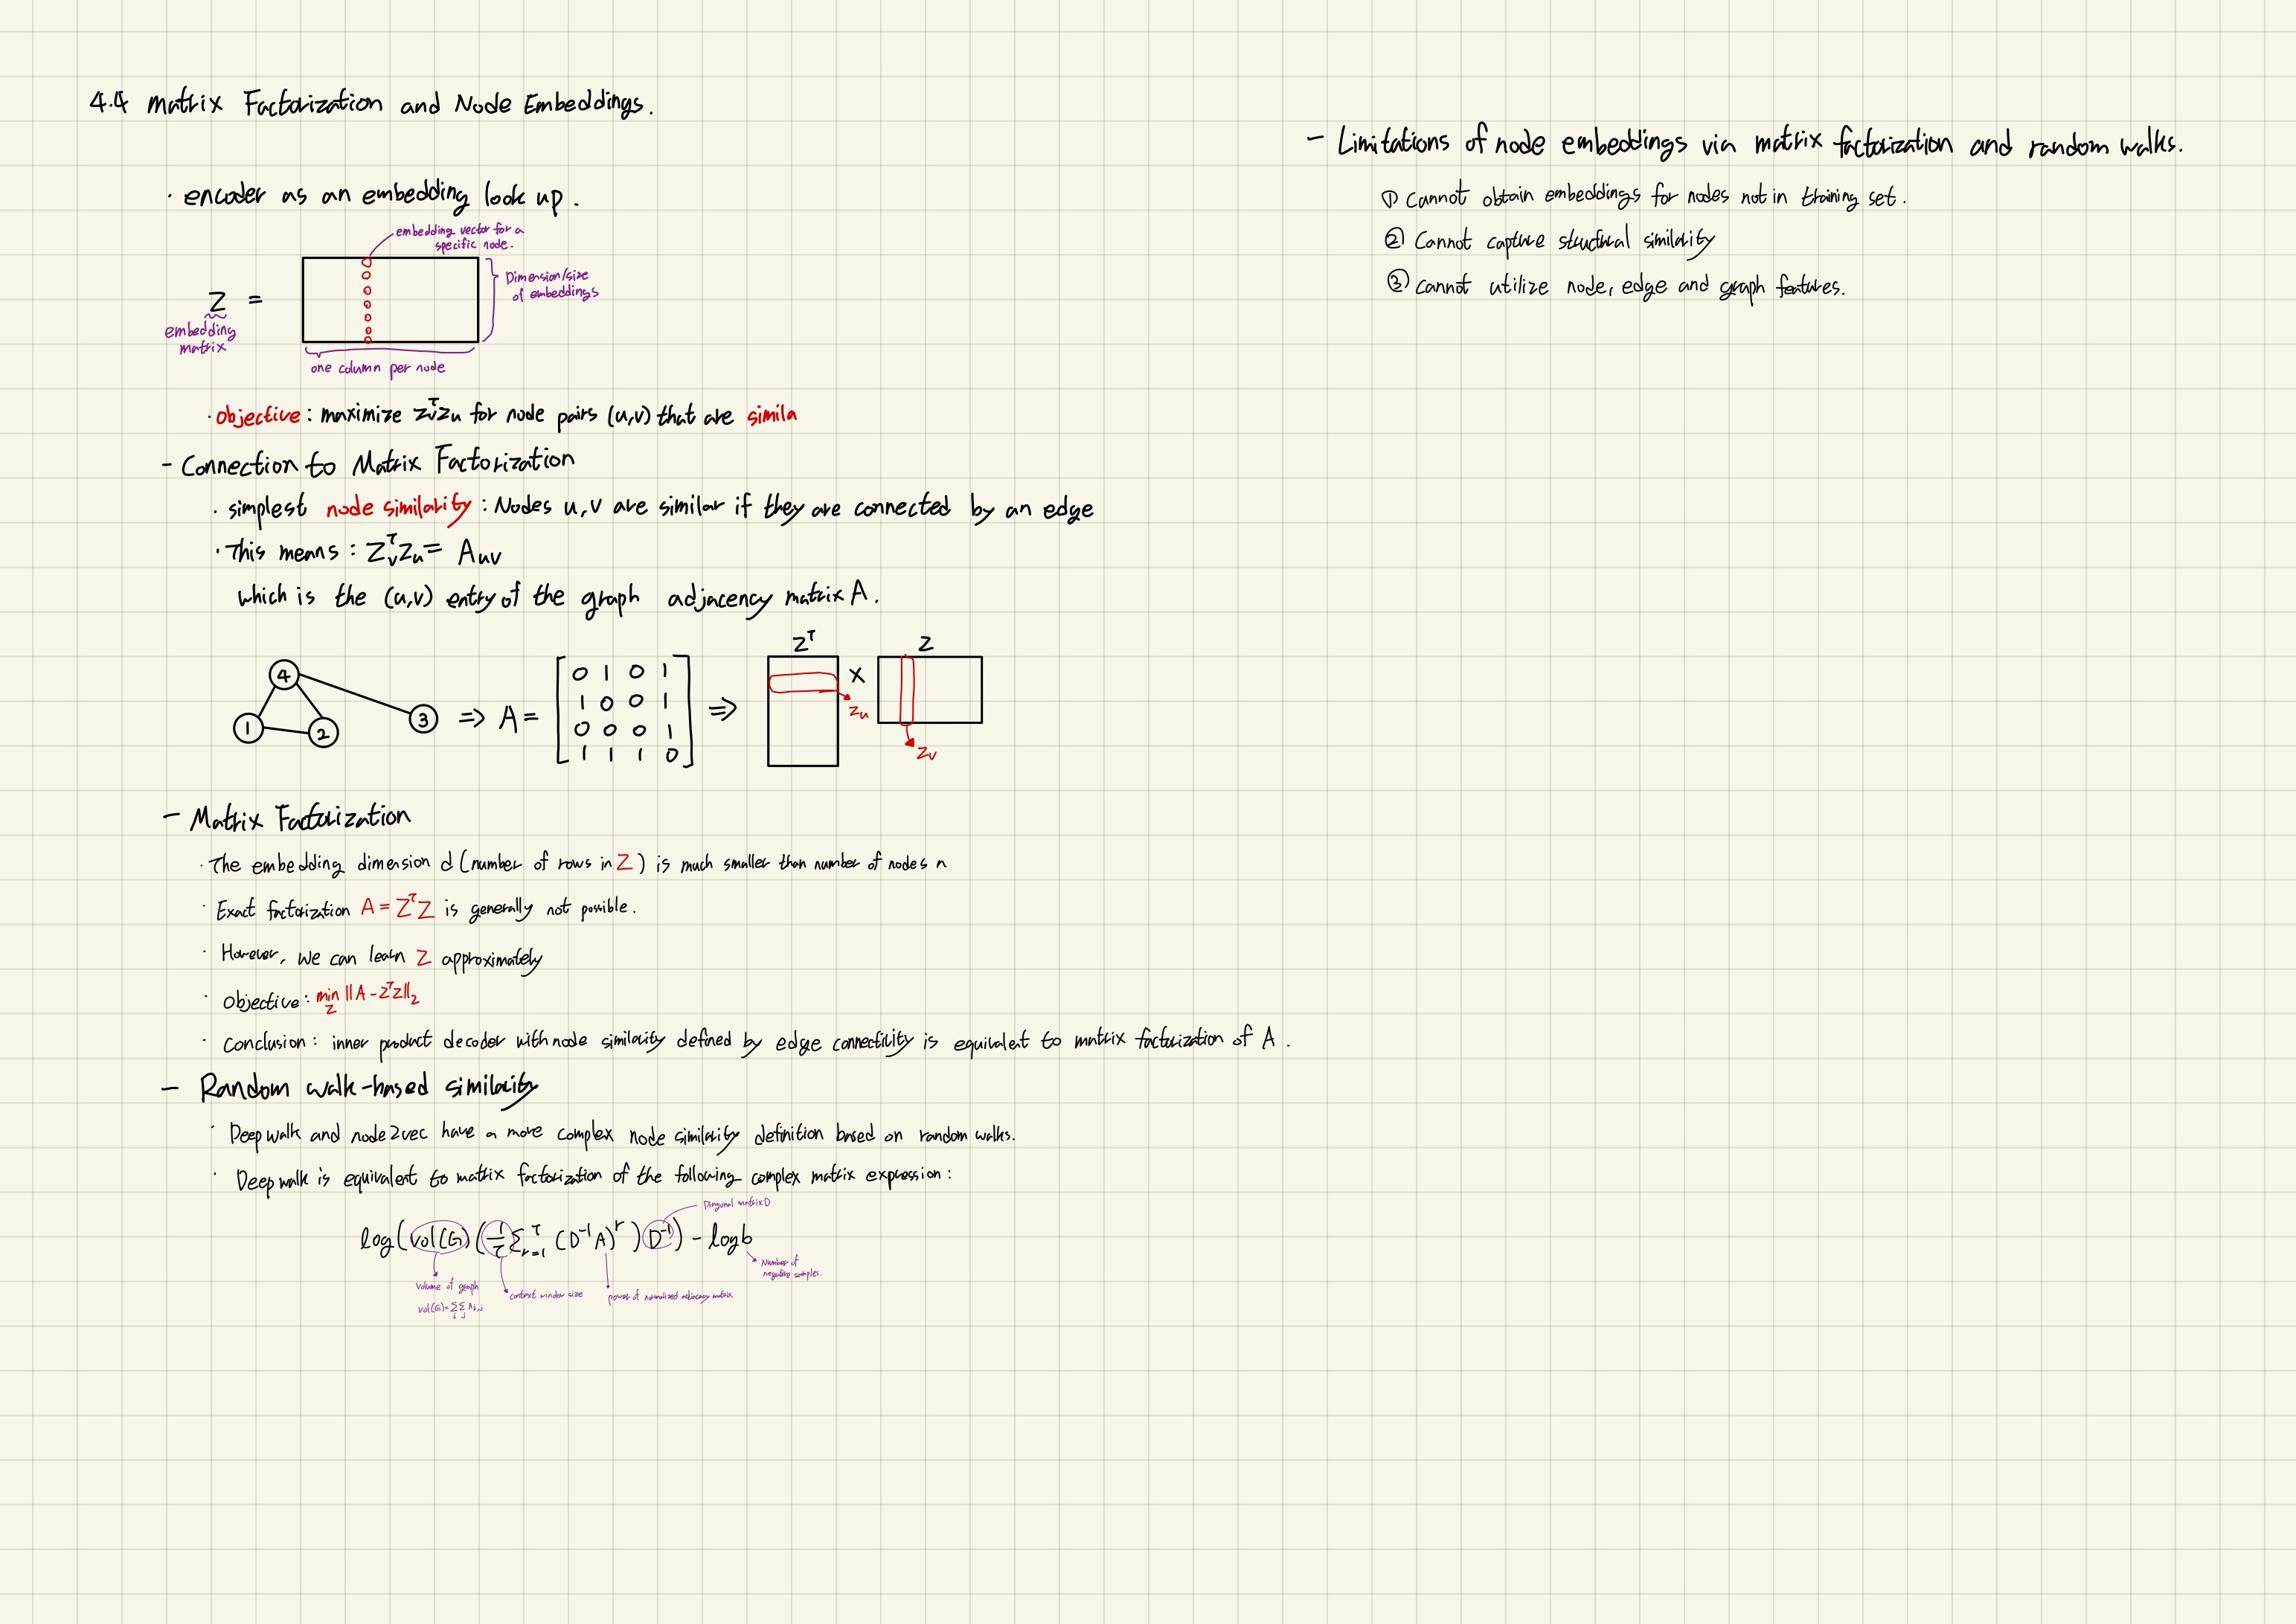 4.4 Matrix Factorization and Node Embeddings.
· encoder as an embedding look up.
embedding vector for a
specific node.
Z =
embedding
matrix
Dimension/size
of embeddings
one column per node
· objective : maximize Zᵥᵀzᵤ for node pairs (u,v) that are simila
- Connection to Matrix Factorization
· simplest node similarity : Nodes u, v are similar if they are connected by an edge
· This means : Zᵥᵀzᵤ = Auv
which is the (u,v) entry of the graph adjacency matrix A.
4
1
2
3
⇒ A =
0 1 0 1
1 0 0 1
0 0 0 1
1 1 1 0
⇒
Zᵀ × Z
zᵤ
zᵥ
- Matrix Factorization
· The embedding dimension d (number of rows in Z) is much smaller than number of nodes n
· Exact factorization A = ZᵀZ is generally not possible.
· However, we can learn Z approximately
· Objective : min_Z ||A - ZᵀZ||₂
· Conclusion : inner product decoder with node similarity defined by edge connectivity is equivalent to matrix factorization of A.
- Random walk-based similarity
· Deepwalk and node2vec have a more complex node similarity definition based on random walks.
· Deepwalk is equivalent to matrix factorization of the following complex matrix expression :
Diagonal matrix D
log(vol(G) (1/T Σᵣ₌₁ᵀ (D⁻¹A)ʳ) D⁻¹) - log b
Number of
negative samples.
volume of graph
vol(G)=ΣᵢΣⱼ Ai,j
context window size
power of normalized adjacency matrix
- Limitations of node embeddings via matrix factorization and random walks.
① Cannot obtain embeddings for nodes not in training set.
② Cannot capture structural similarity
③ Cannot utilize node, edge and graph features.